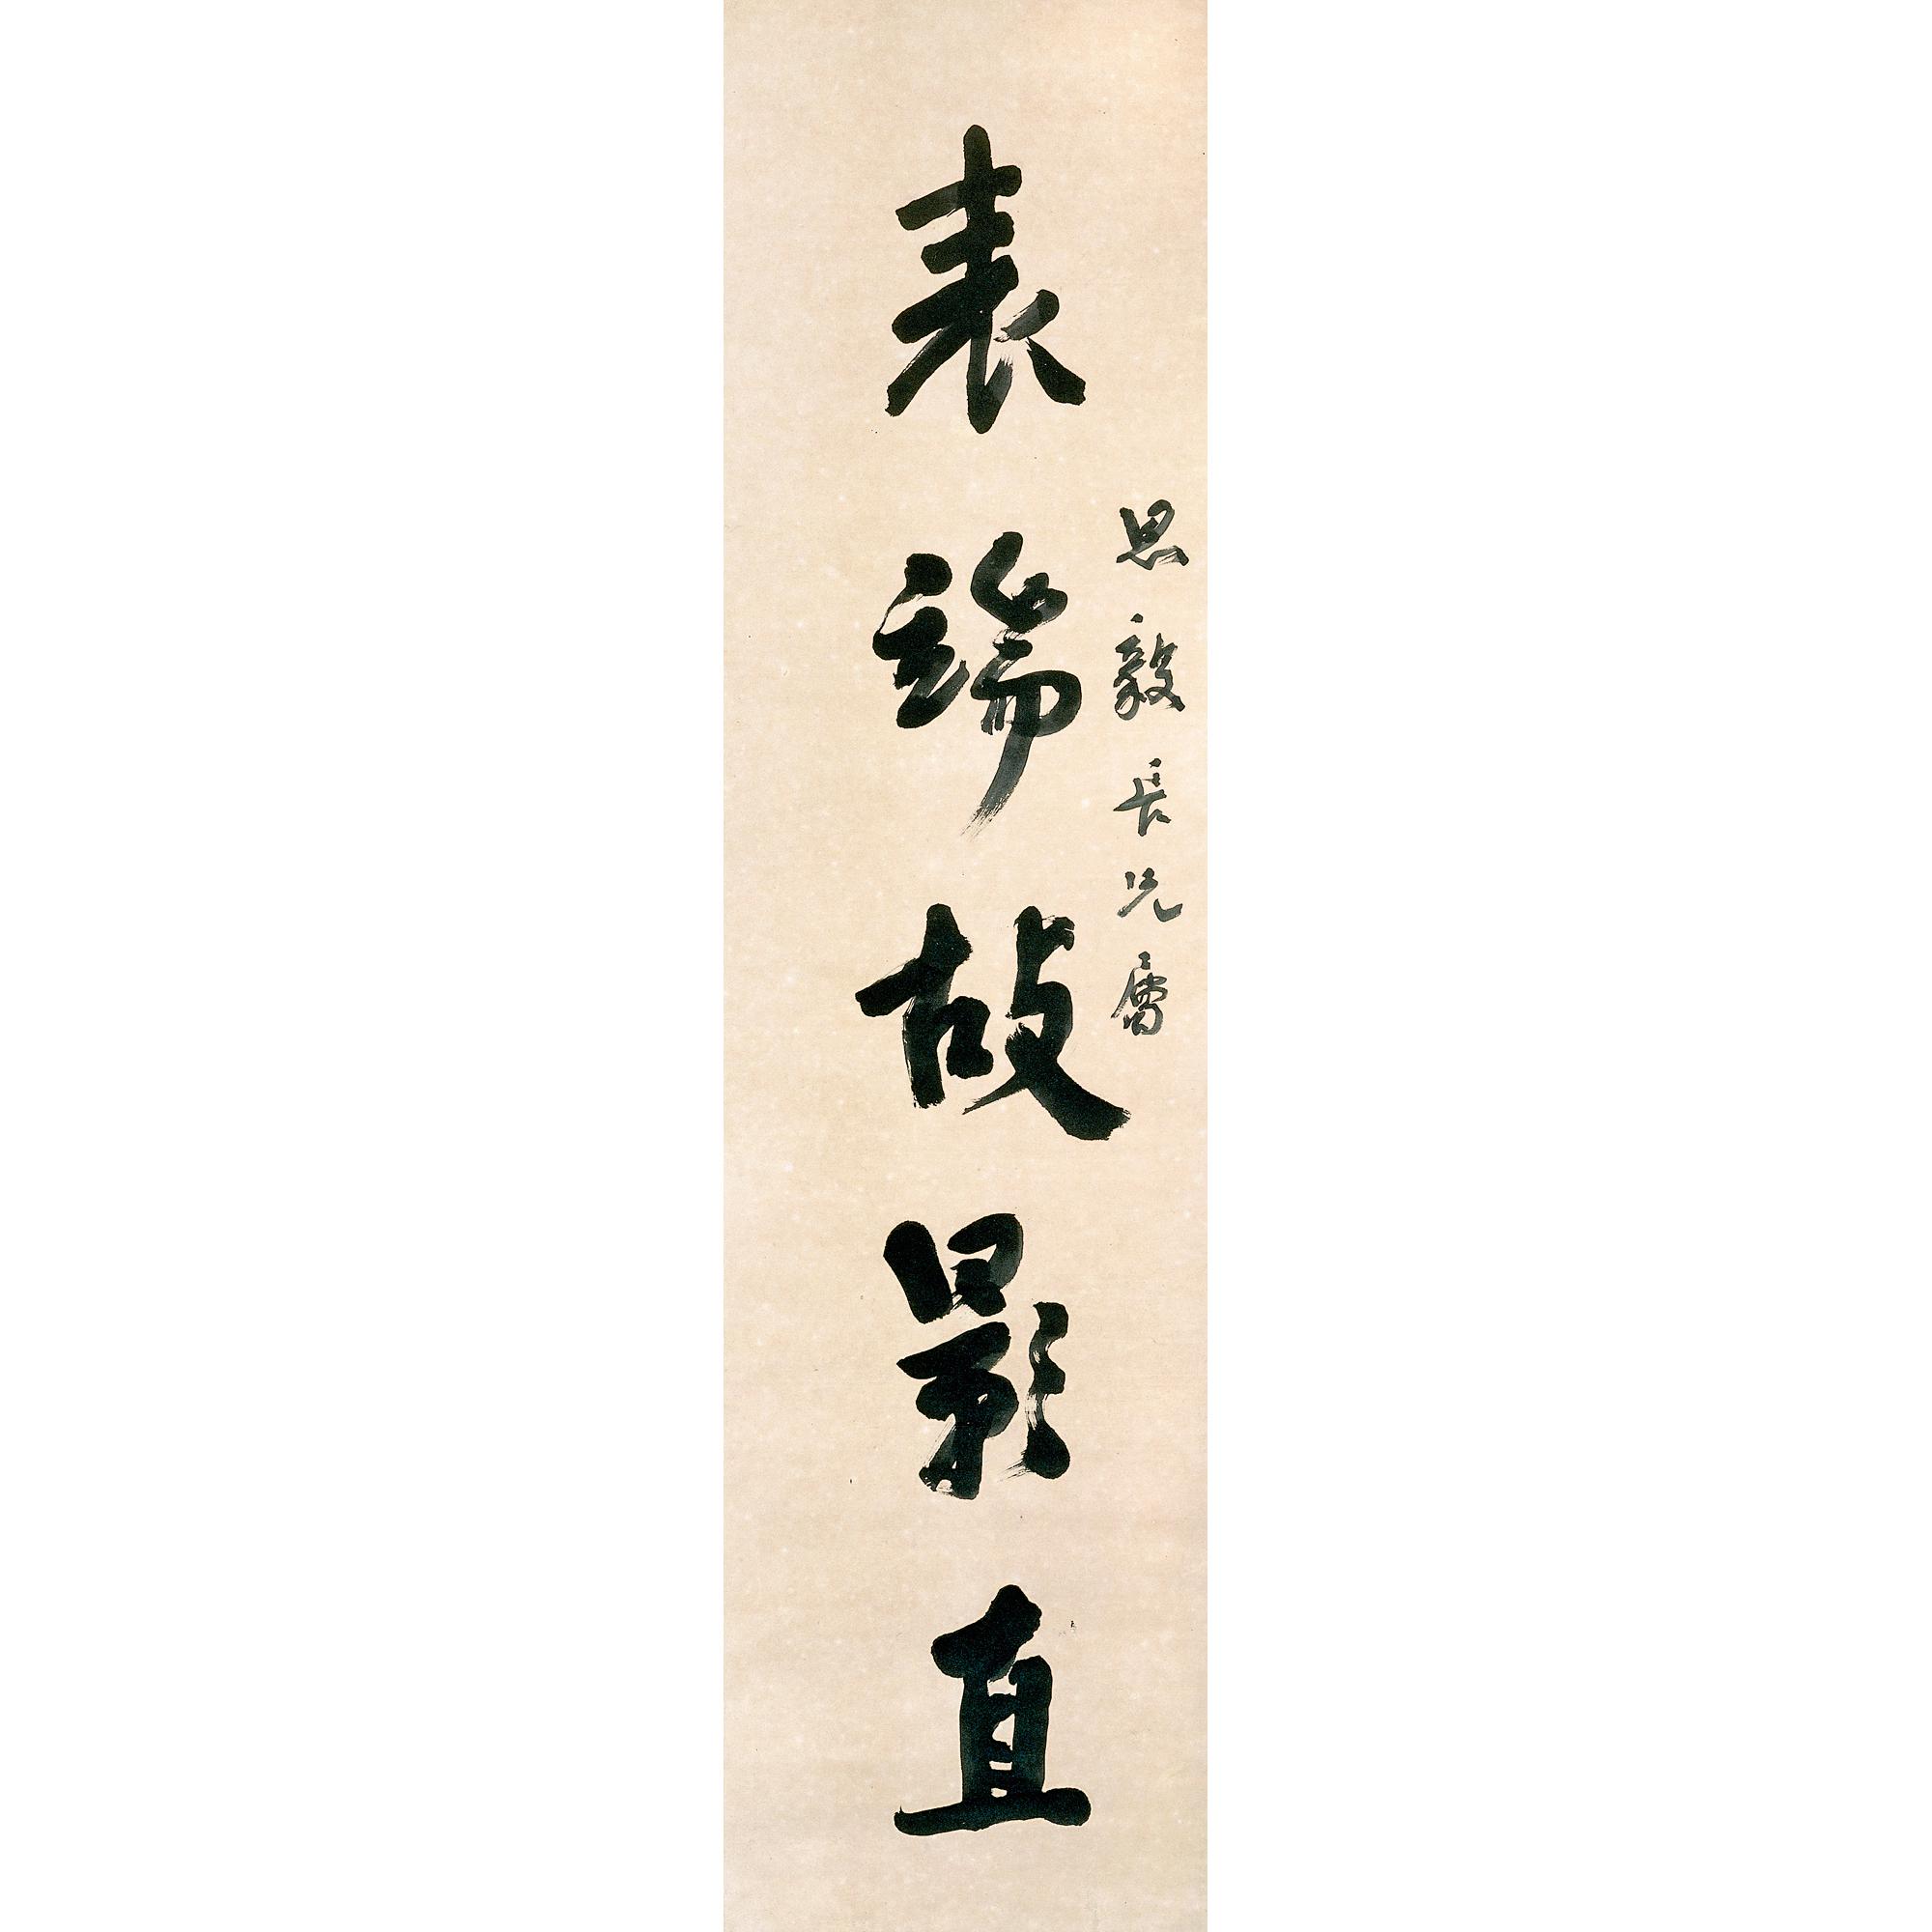 思毅長兄屬
表端故影直